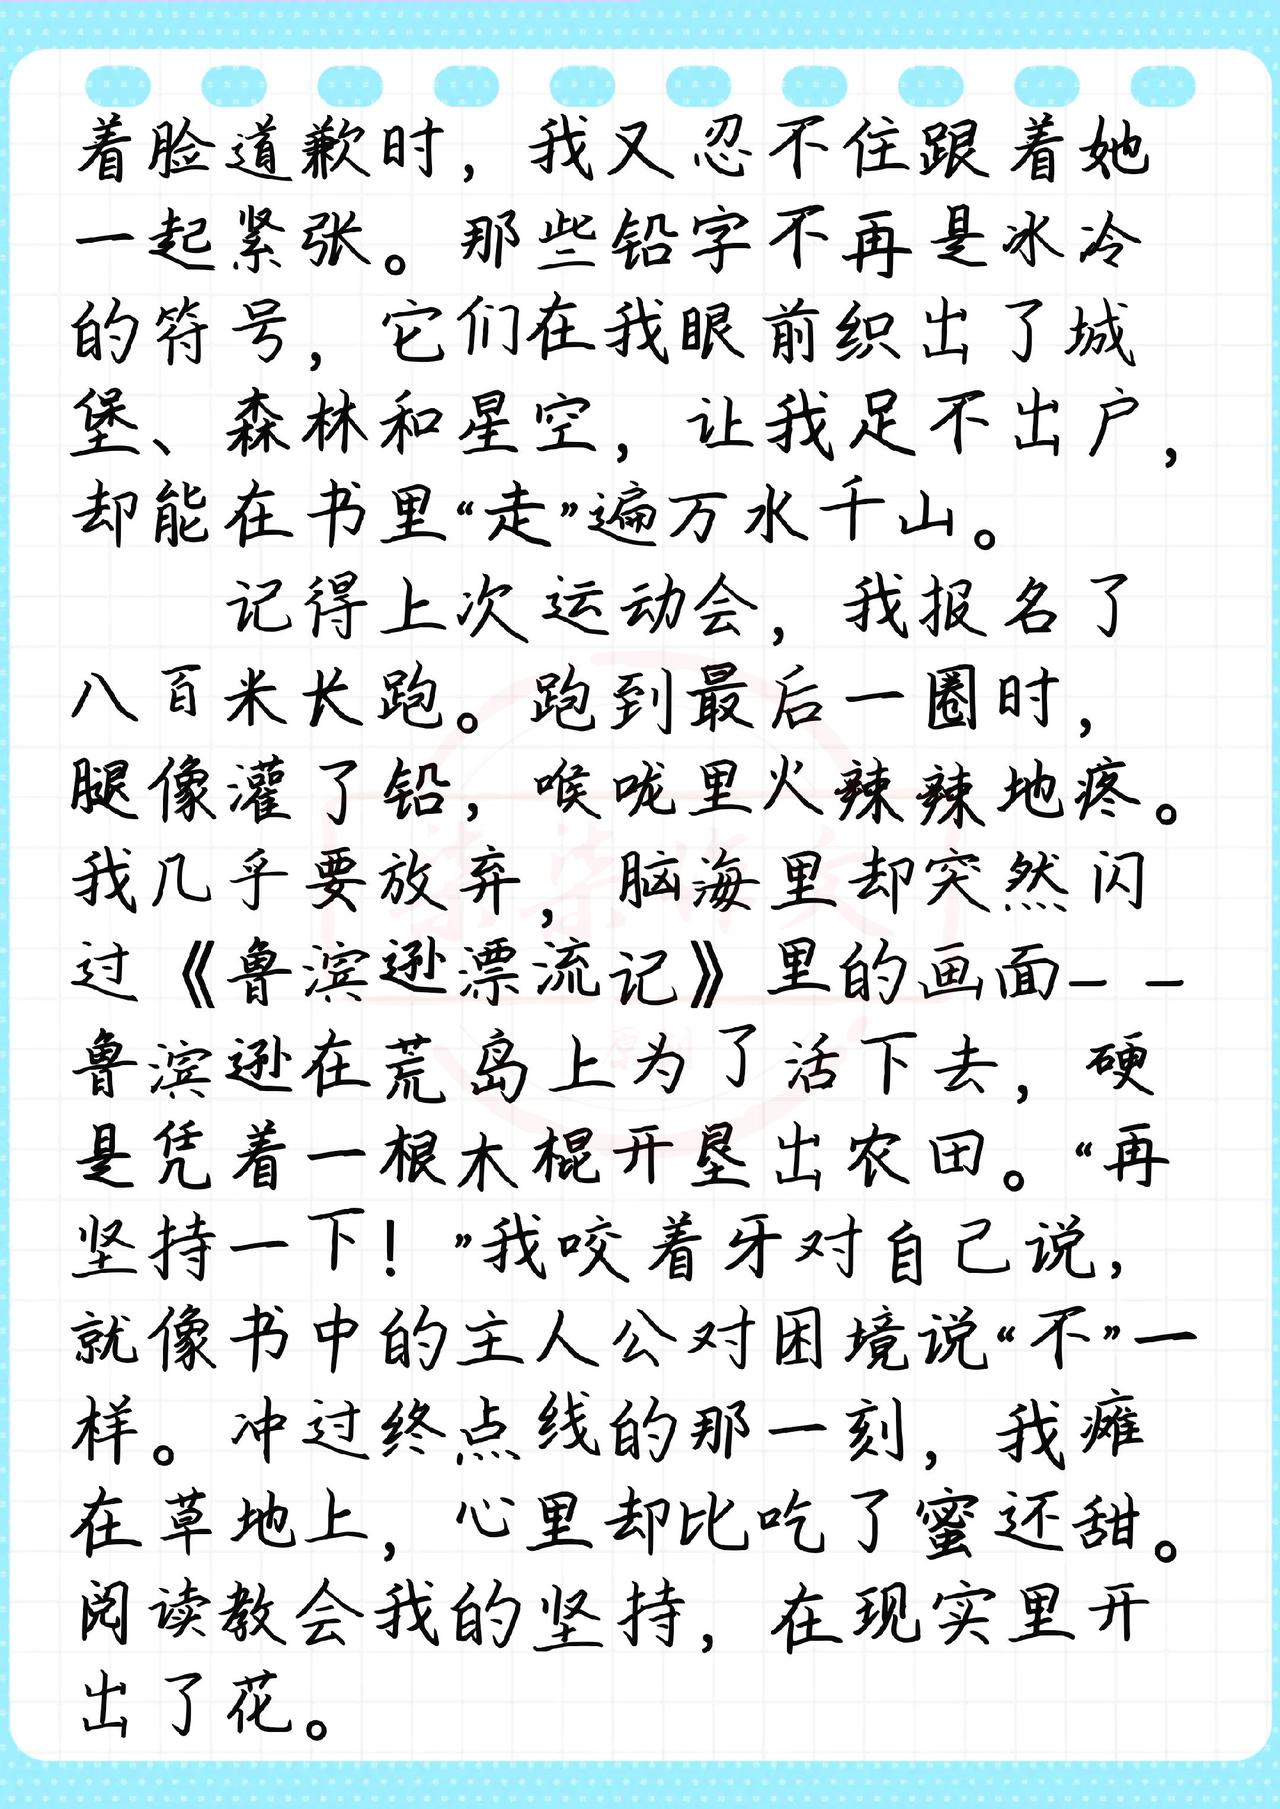 着脸道歉时，我又忍不住跟着她
一起紧张。那些铅字不再是冰冷
的符号，它们在我眼前织出了城
堡、森林和星空，让我足不出户，
却能在书里“走”遍万水千山。
记得上次运动会，我报名了
八百米长跑。跑到最后一圈时，
腿像灌了铅，喉咙里火辣辣地疼。
我几乎要放弃，脑海里却突然闪
过《鲁滨逊漂流记》里的画面——
鲁滨逊在荒岛上为了活下去，硬
是凭着一根木棍开垦出农田。“再
坚持一下！”我咬着牙对自己说，
就像书中的主人公对困境说“不”一
样。冲过终点线的那一刻，我瘫
在草地上，心里却比吃了蜜还甜。
阅读教会我的坚持，在现实里开
出了花。